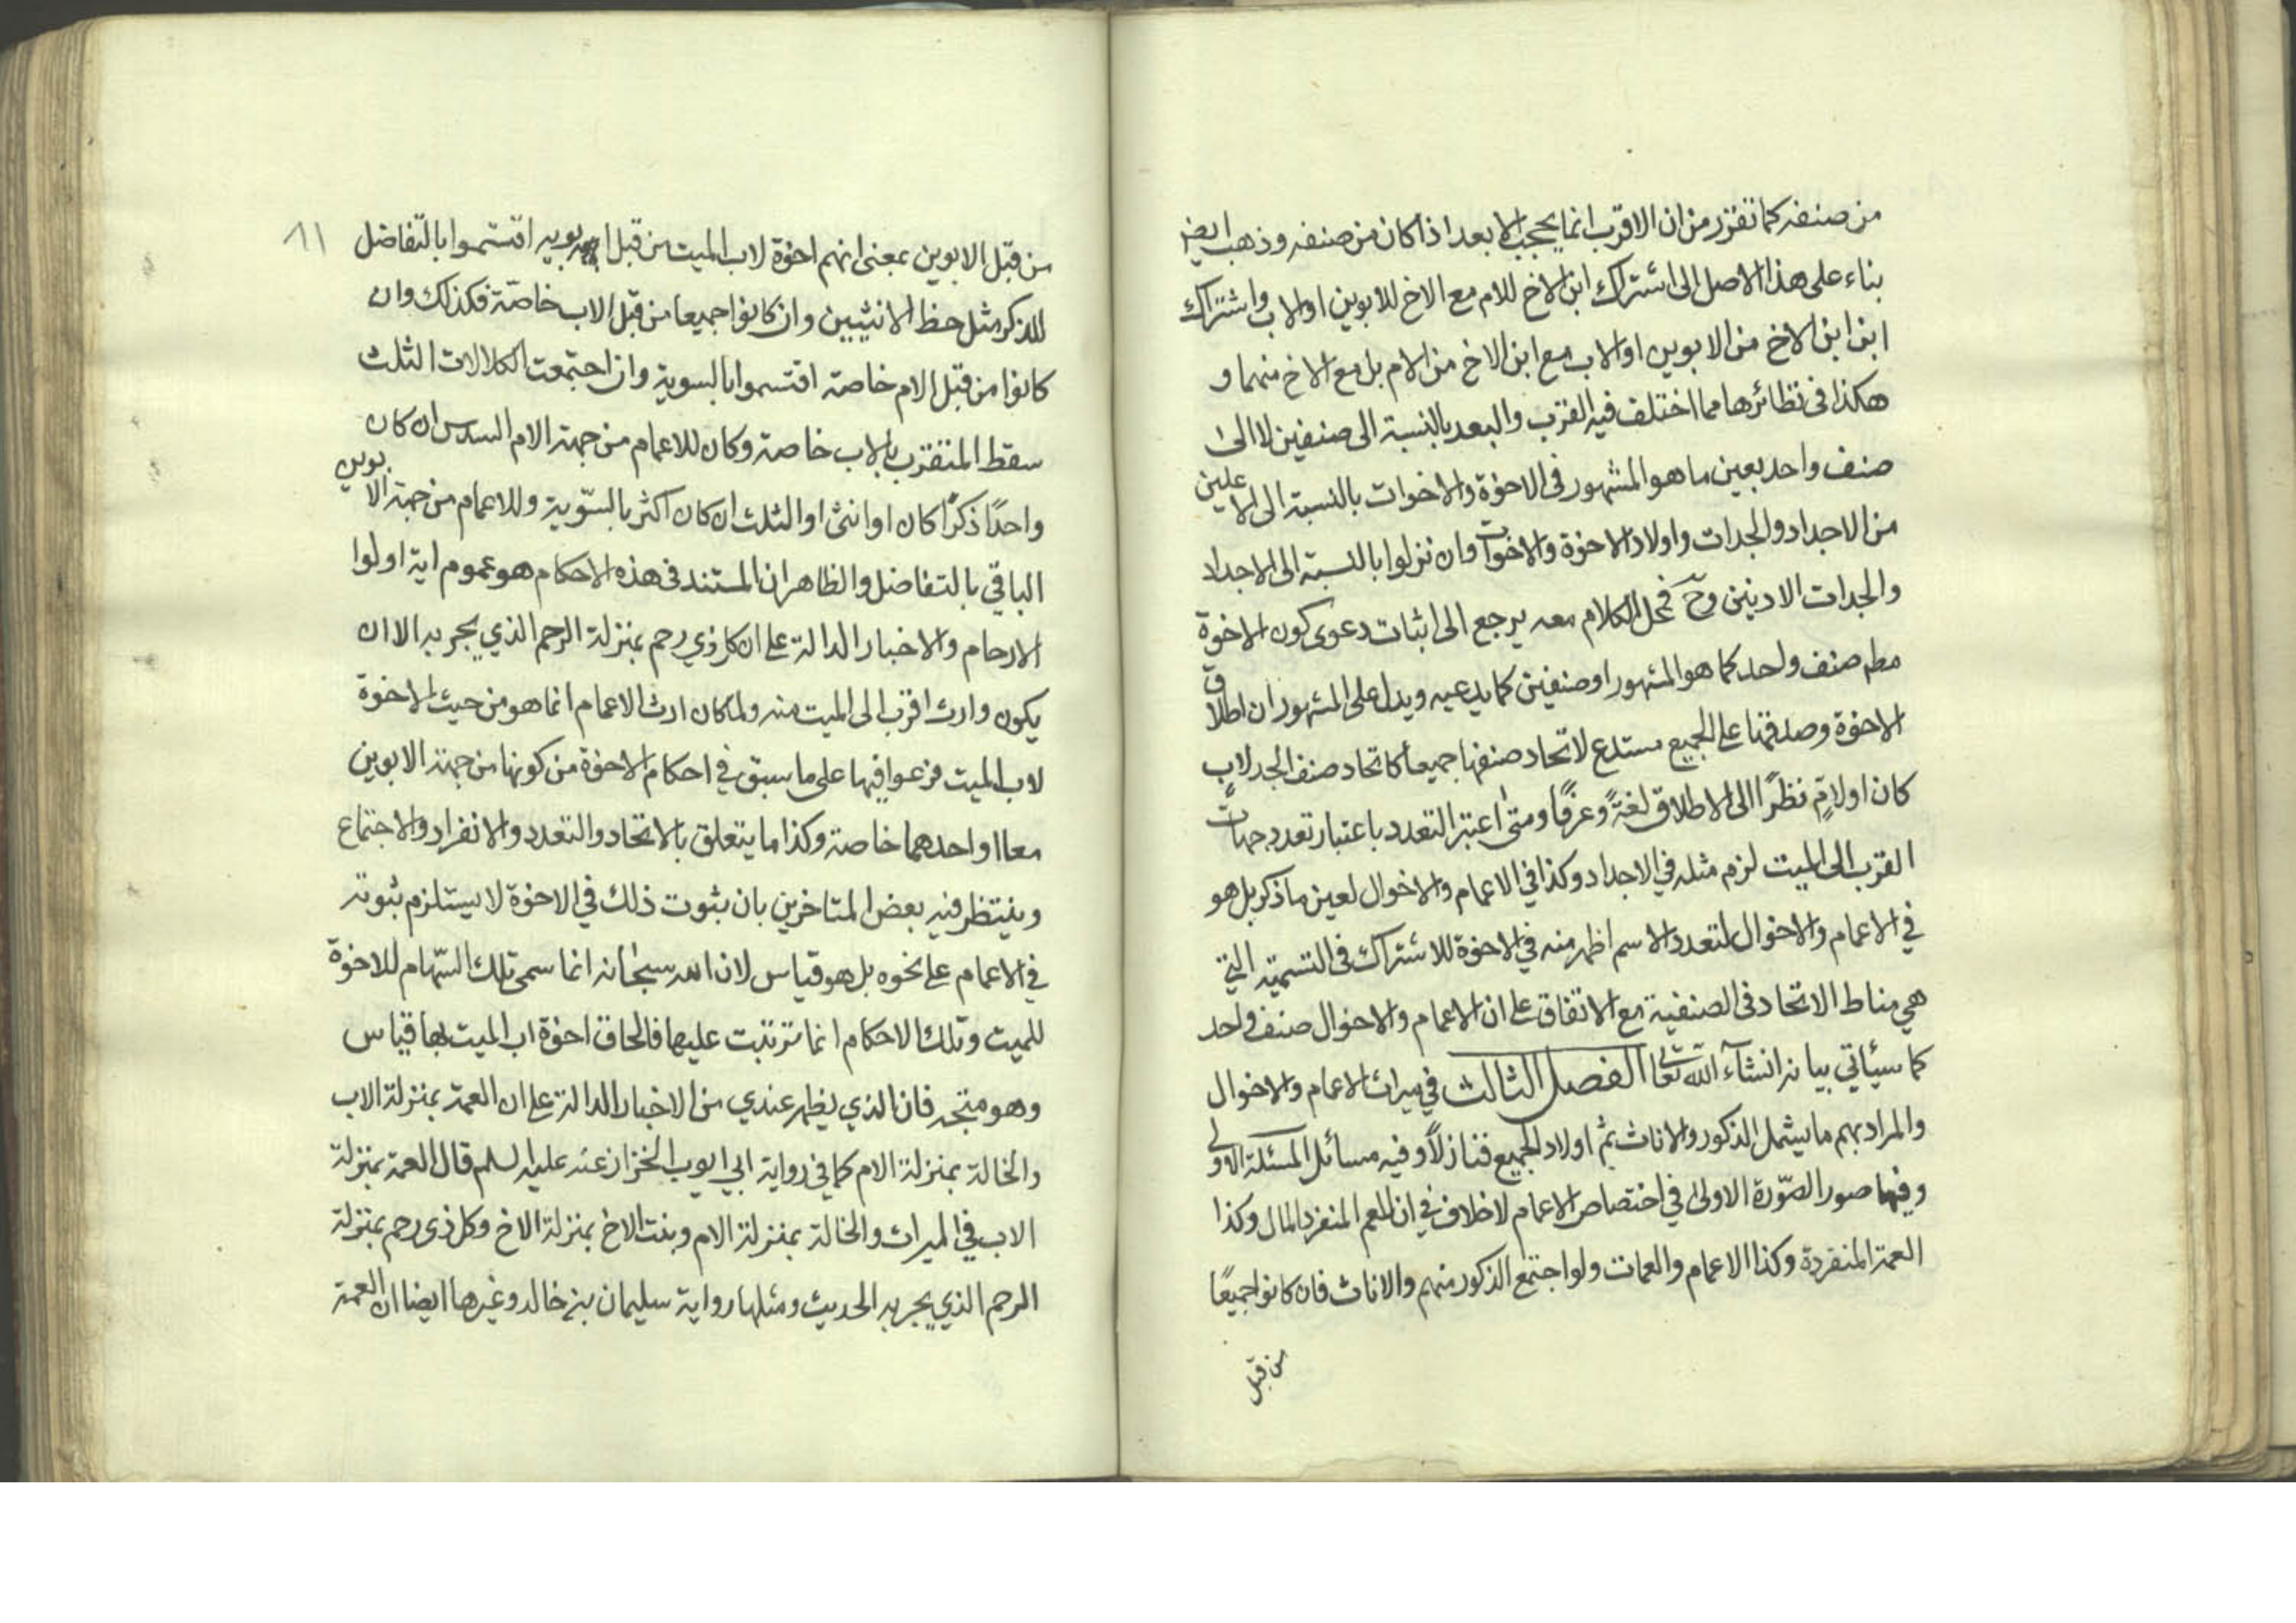 من صنفه كما تقرر من ان الاقرب انما يحجب الابعد اذا كان من صنفه وذهب ايضا
بناء على هذا الاصل الى اشتراك ابن الاخ للام مع الاخ للابوين او الاب واشتراك
ابن ابن الاخ من الابوين او الاب مع ابن الاخ من الام بل مع الاخ منهما و
هكذا فى نظائرها مما اختلف فيه القرب والبعد بالنسبة الى صنفين لا الى
صنف واحد بعين ما هو المشهور فى الاخوة والاخوات بالنسبة الى الاعلين
من الاجداد والجدات واولاد الاخوة والاخوات وان نزلوا بالنسبة الى الاجداد
والجدات الادنين وح فمحل الكلام معه يرجع الى اثبات دعوى كون الاخوة
مطم صنف واحد كما هو المشهور او صنفين كما يدعيه ويدل على المشهور ان اطلاق
الاخوة وصدقها على الجميع مستدع لاتحاد صنفها جميعا كاتحاد صنف الجد لابٍ
كان او لامٍ نظرًا الى الاطلاق لغةً وعرفًا ومتى اعتبر التعدد باعتبار تعدد جهات
القرب الى الميت لزم مثله في الاجداد وكذا في الاعمام والاخوال لعين ما ذكر بل هو
في الاعمام والاخوال لتعدد الاسم اظهر منه في الاخوة للاشتراك فى التسمية التي
هي مناط الاتحاد فى الصنفية مع الاتفاق على ان الاعمام والاخوال صنف واحد
كما سيأتي بيانه انشآء الله تعالى الفصل الثالث في ميراث الاعمام والاخوال
والمراد بهم ما يشمل الذكور والاناث ثم اولاد الجميع فنازلاً وفيه مسائل المسئلة الاولى
وفيها صور الصّورة الاولى في اختصاص الاعمام لاخلاف في ان للعم المنفرد المال وكذا
العمة المنفردة وكذا الاعمام والعمات ولو اجتمع الذكور منهم والاناث فان كانوا جميعًا
من قبل
١١
من قبل الابوين بمعنى انهم اخوة لاب الميت من قبل ابويه اقتسموا بالتفاضل
للذكر مثل حظ الانثيين وان كانوا جميعا من قبل الاب خاصّة فكذلك وان
كانوا من قبل الام خاصة اقتسموا بالسوية وان اجتمعت الكلالات الثلث
سقط المتقرب بالاب خاصة وكان للاعمام من جهة الام السدس ان كان
واحدًا ذكرًا كان او انثى او الثلث ان كان اكثر بالسّوية وللاعمام من جهة الابوين
الباقي بالتفاضل والظاهر ان المستند فى هذه الاحكام هو عموم اية اولوا
الارحام والاخبار الدالة على ان كل ذي رحم بمنزلة الرحم الذي يجر به الا ان
يكون وارث اقرب الى الميت منه ولما كان ارث الاعمام انما هو من حيث الاخوة
لاب الميت فرعوا فيها على ما سبق في احكام الاخوة من كونها من جهة الابوين
معا او احدهما خاصة وكذا ما يتعلق بالاتحاد والتعدد والانفراد والاجتماع
وينتظر فيه بعض المتاخرين بان ثبوت ذلك في الاخوة لا يستلزم ثبوته
في الاعمام على نحوه بل هو قياس لان الله سبحانه انما سمى تلك السّهام للاخوة
للميت وتلك الاحكام انما ترتبت عليها فالحاق اخوة اب الميت بها قياس
وهو متجه فان الذي يظهر عندي من الاخبار الدالة على ان العمة بمنزلة الاب
والخالة بمنزلة الام كما في رواية ابي ايوب الخزاز عنه عليه السلم قال العمة بمنزلة
الاب في الميراث والخالة بمنزلة الام وبنت الاخ بمنزلة الاخ وكل ذى رحم بمنزلة
الرحم الذي يجر به الحديث ومثلها رواية سليمان بن خالد وغيرها ايضا ان العمة